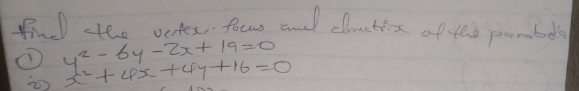 find the vertex. focus and directrix of the parabola
① y² - 6y - 2x + 19 = 0
2) x² + 4x + 4y + 16 = 0